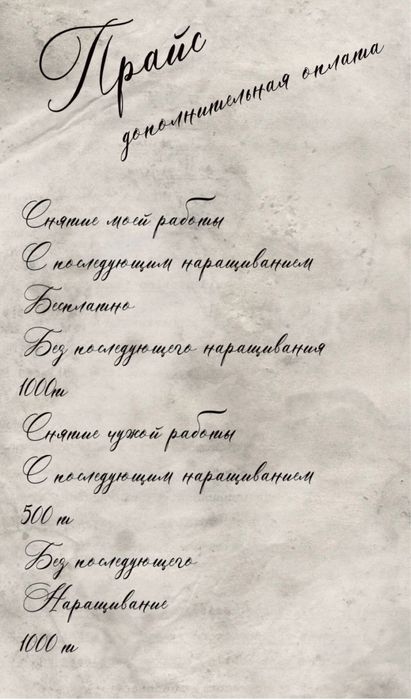 Прайс
дополнительная оплата
Снятие моей работы
С последующим наращиванием
Бесплатно
Без последующего наращивания
1000т
Снятие чужой работы
С последующим наращиванием
500 т
Без последующего
Наращивание
1000 т